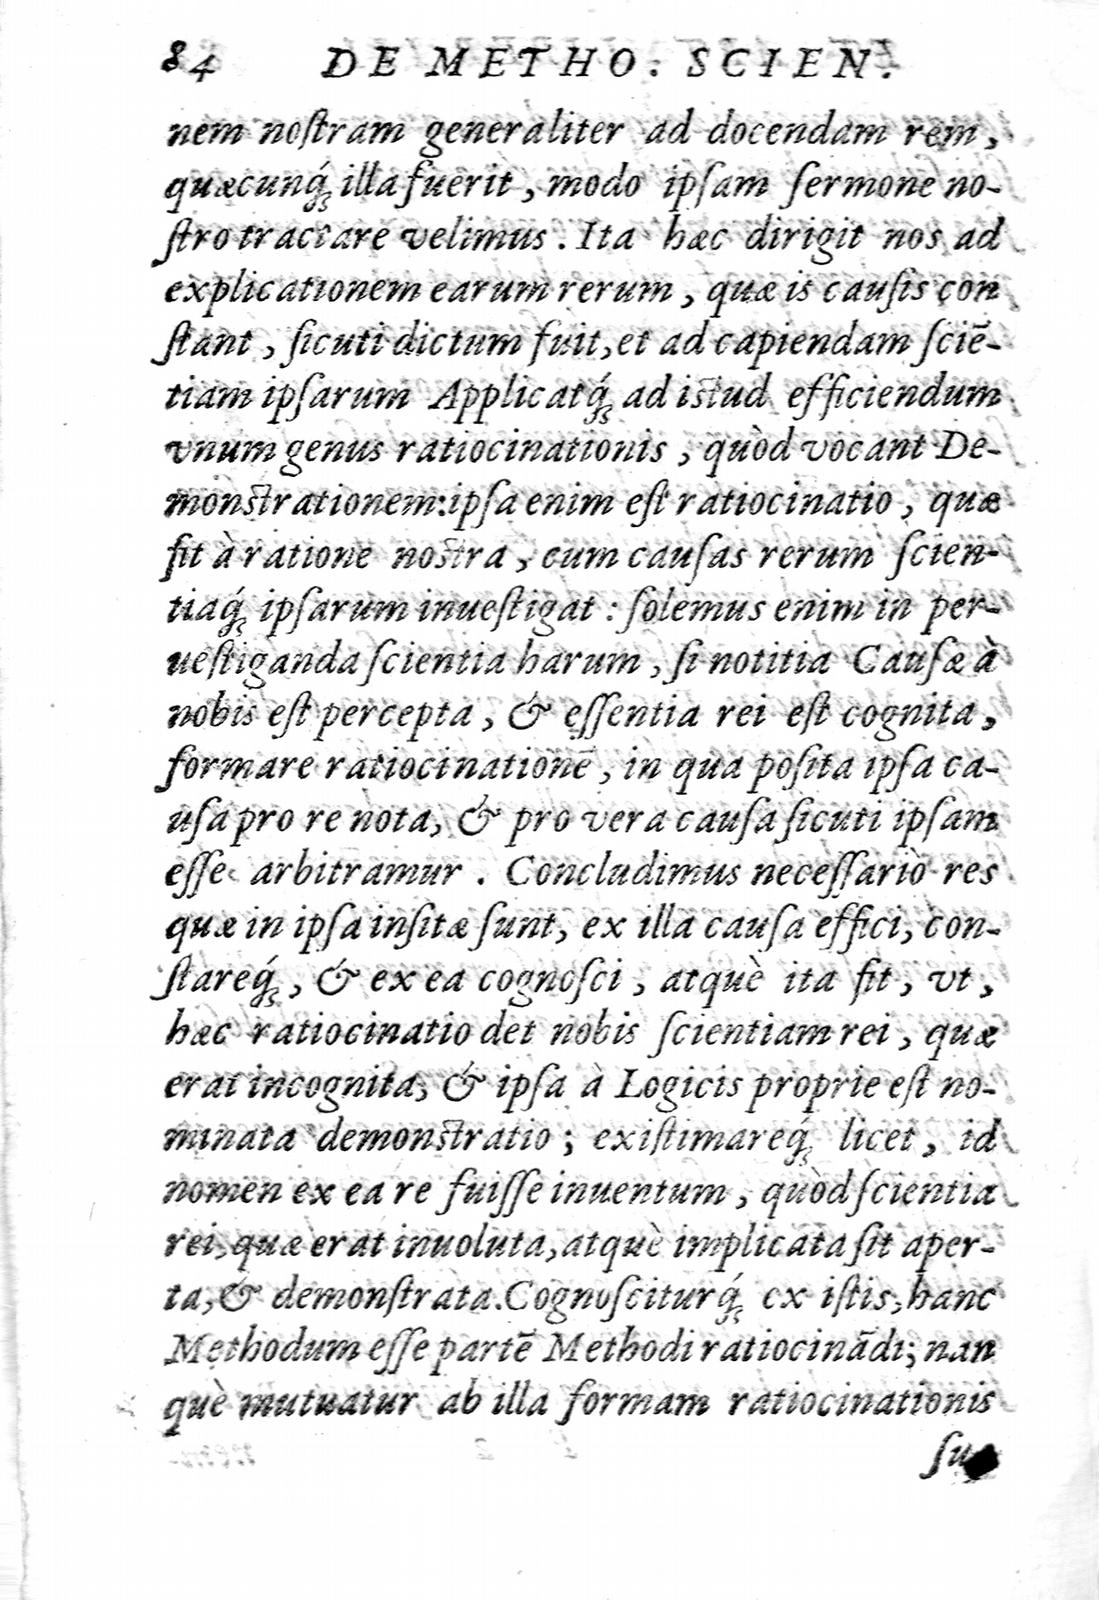 84 DE METHO. SCIEN.
nem noſtram generaliter ad docendam rem,
quæcunq́; illa fuerit, modo ipſam ſermone no-
ſtro tractare velimus. Ita hæc dirigit nos ad
explicationem earum rerum, quæ is cauſis con
ſtant, ſicuti dictum fuit, et ad capiendam ſciē-
tiam ipſarum Applicatq́; ad iſtud efficiendum
vnum genus ratiocinationis, quòd vocant De-
monſtrationem: ipſa enim eſt ratiocinatio, quæ
fit à ratione noſtra, cum cauſas rerum ſcien-
tiaq́; ipſarum inueſtigat: ſolemus enim in per-
ueſtiganda ſcientia harum, ſi notitia Cauſæ à
nobis eſt percepta, & eſſentia rei eſt cognita,
formare ratiocinationē, in qua poſita ipſa ca-
uſa pro re nota, & pro vera cauſa ſicuti ipſam
eſſe arbitramur. Concludimus neceſſariò res
quæ in ipſa inſitæ ſunt, ex illa cauſa effici, con-
ſtareq́;, & ex ea cognoſci, atquè ita fit, vt,
hæc ratiocinatio det nobis ſcientiam rei, quæ
erat incognita, & ipſa à Logicis proprie eſt no-
minata demonſtratio; exiſtimareq́; licet, id
nomen ex ea re fuiſſe inuentum, quòd ſcientia
rei, quæ erat inuoluta, atquè implicata ſit aper-
ta, & demonſtrata. Cognoſciturq́; ex iſtis, hanc
Methodum eſſe partē Methodi ratiocinādi; nan
què mutuatur ab illa formam ratiocinationis